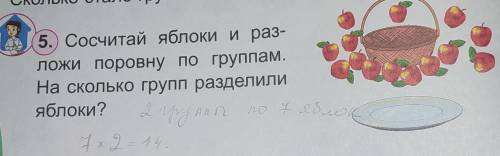 5. Сосчитай яблоки и раз-
ложи поровну по группам.
На сколько групп разделили
яблоки? 2 группы по 7 яблок
7 × 2 = 14.